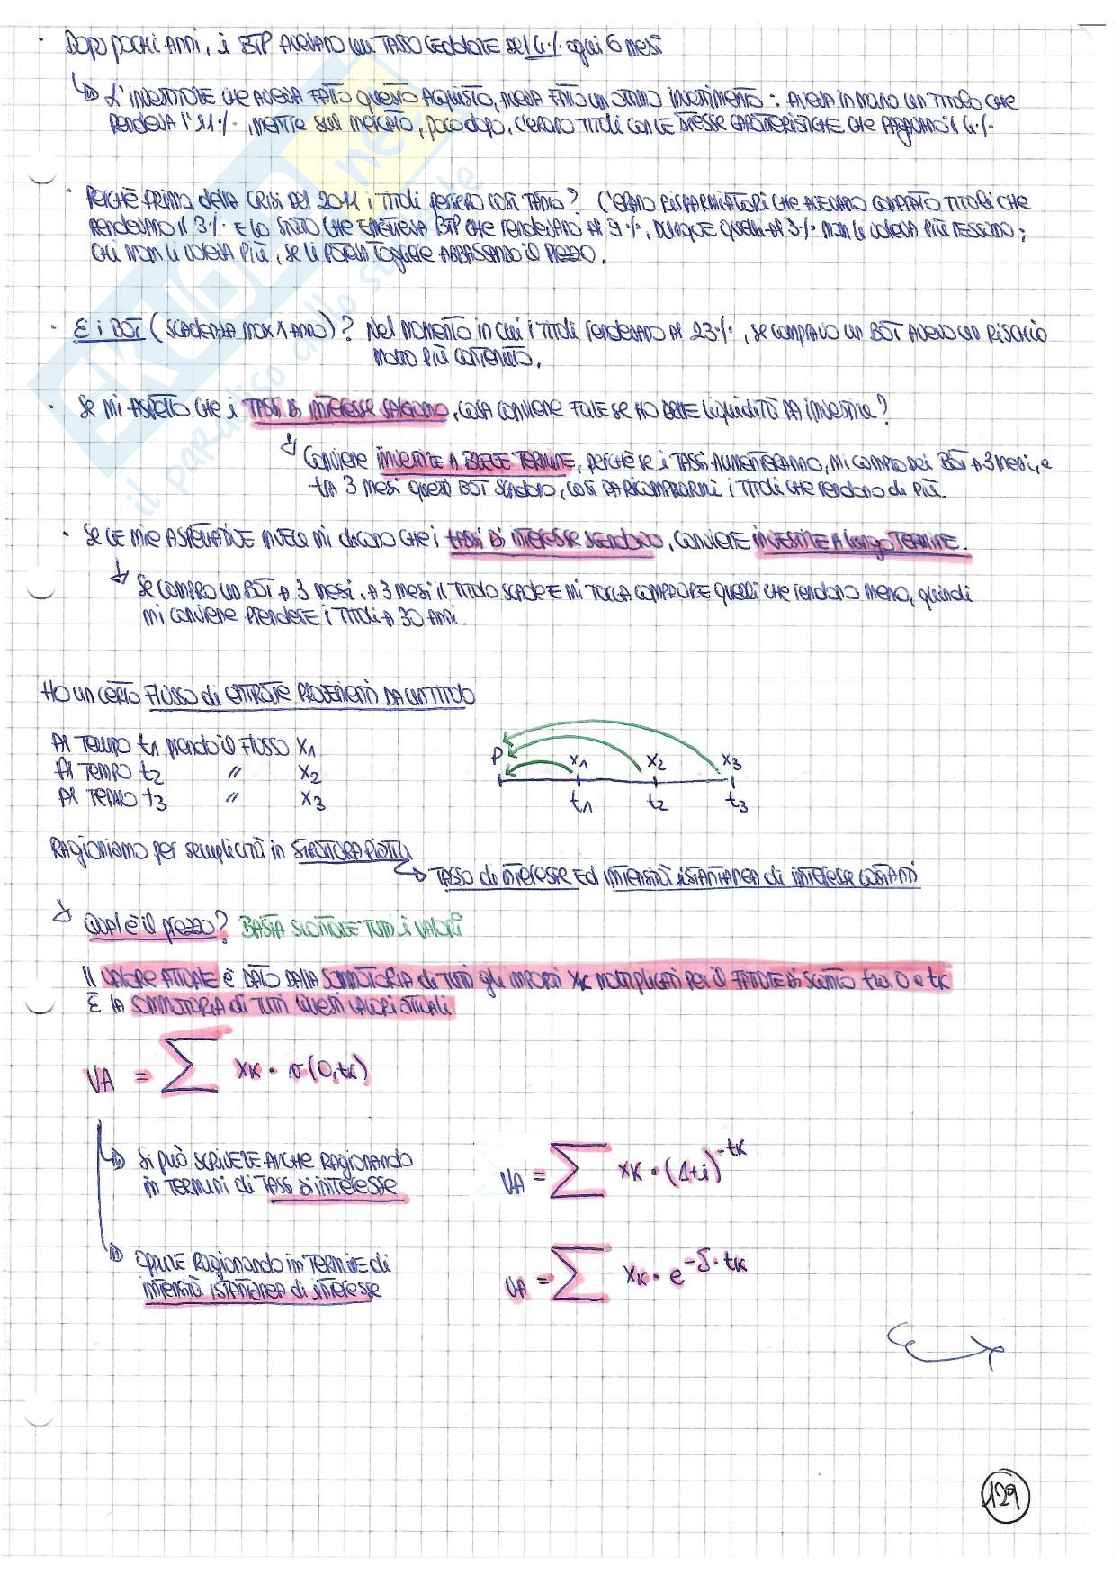 · Dopo pochi anni, i BTP avevano un tasso cedolare del 4% ogni 6 mesi
↳ L'investitore che aveva fatto questo acquisto, aveva fatto un ottimo investimento: aveva in mano un titolo che
rendeva l'11%, mentre sul mercato, poco dopo, c'erano titoli con le stesse caratteristiche che pagavano il 4%.
· Perché prima della crisi del 2011 i titoli persero così tanto? C'erano risparmiatori che avevano comprato titoli che
rendevano il 3% e lo Stato che emetteva BTP che rendevano al 9%, dunque quelli al 3% non li voleva più nessuno:
chi non li voleva più, se li poteva togliere abbassando il prezzo.
· E i BOT (scadenza max 1 anno)? Nel momento in cui i titoli rendevano al 23%, se compravo un BOT avevo un rischio
molto più contenuto.
· Se mi aspetto che i tassi di interesse salgono, cosa conviene fare se ho delle liquidità da investire?
↳ Conviene investire a breve termine, perché se i tassi aumenteranno, mi compro dei BOT a 3 mesi, e
tra 3 mesi questi BOT scadono, così da ricomprarmi i titoli che rendono di più.
· Se le mie aspettative invece mi dicono che i tassi di interesse scendono, conviene investire a lungo termine.
↳ Se compro un BOT a 3 mesi, a 3 mesi il titolo scade e mi tocca comprare quelli che rendono meno, quindi
mi conviene prendere i titoli a 30 anni.
Ho un certo flusso di entrate provenienti da un titolo
Al tempo t1 prendo il flusso x1
Al tempo t2 " x2
Al tempo t3 " x3
P x1 x2 x3
t1 t2 t3
Ragioniamo per semplicità in struttura piatta
↳ tasso di interesse ed intensità istantanea di interesse costanti
↳ Qual è il prezzo? Basta scontare tutti i valori
Il valore attuale è dato dalla sommatoria di tutti gli importi xk moltiplicati per il fattore di sconto tra 0 e tk
È la sommatoria di tutti questi valori attuali
VA = ∑ xk · v(0,tk)
↳ Si può scrivere anche ragionando
in termini di tassi di interesse
VA = ∑ xk · (1+i)^-tk
↳ oppure ragionando in termine di
intensità istantanea di interesse
VA = ∑ xk · e^-δ·tk
129